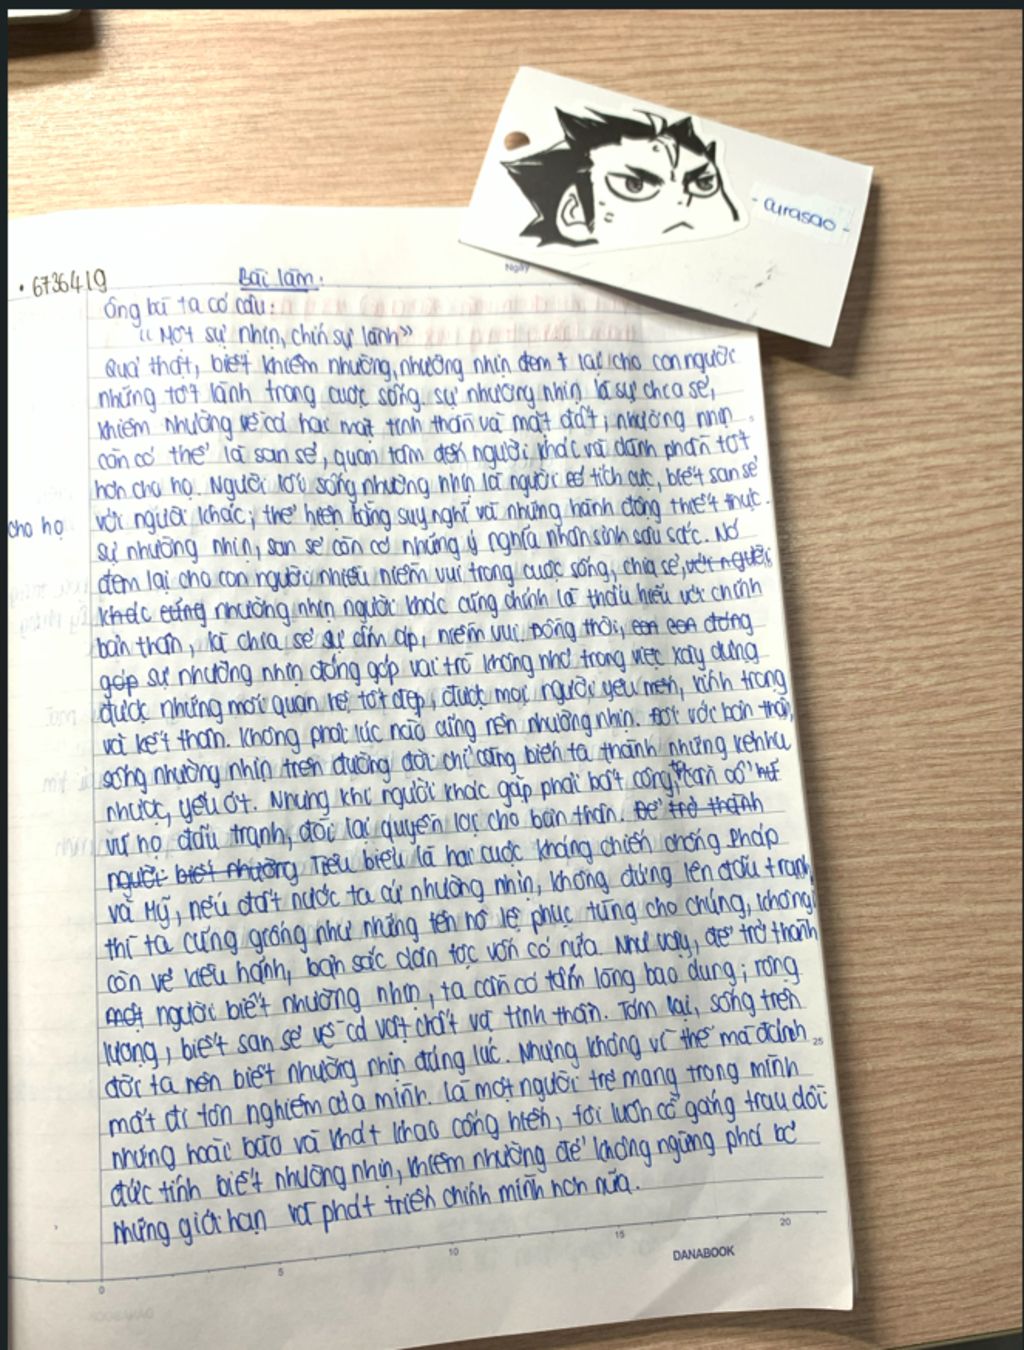 - curasao -
Ngày
• 6736419
Bài làm:
Ông bà ta có câu:
“Một sự nhịn, chín sự lành”
Quả thật, biết khiêm nhường, nhường nhịn đem + lại cho con người
những tốt lành trong cuộc sống. sự nhường nhịn là sự chia sẻ,
khiêm nhường về cả hai mặt tinh thần và mặt đất; nhường nhịn
còn có thể là san sẻ, quan tâm đến người khác và dành phần tốt
hơn cho họ. Người lối sống nhường nhịn là người có tích cực, biết san sẻ
cho họ
với người khác; thể hiện bằng suy nghĩ và những hành động thiết thực.
Sự nhường nhịn, san sẻ còn có những ý nghĩa nhân sinh sâu sắc. Nó
đem lại cho con người nhiều niềm vui trong cuộc sống, chia sẻ, với người
khác cũng nhường nhịn người khác cũng chính là thấu hiểu với chính
bản thân, là chia sẻ sự ấm áp, niềm vui. Đồng thời, con con đóng
góp sự nhường nhịn đóng góp vai trò không nhỏ trong việc xây dựng
được những mối quan hệ tốt đẹp, được mọi người yêu mến, kính trọng
và kết thân. Không phải lúc nào cũng nên nhường nhịn. Đối với bản thân,
sống nhường nhịn trên đường đời chỉ càng biến ta thành những kẻ nhu
nhược, yếu ớt. Nhưng khi người khác gặp phải bất công, cần có
vì họ đấu tranh, đòi lại quyền lợi cho bản thân. Để trở thành
người biết nhường Tiêu biểu là hai cuộc kháng chiến chống Pháp
và Mỹ, nếu đất nước ta cứ nhường nhịn, không đứng lên đấu tranh,
thì ta cũng giống như những tên nô lệ phục tùng cho chúng, không
còn vẻ kiêu hãnh, bản sắc dân tộc vốn có nữa. Như vậy, để trở thành
một người biết nhường nhịn, ta cần có tấm lòng bao dung; rộng
lượng, biết san sẻ về cả vật chất và tinh thần. Tóm lại, sống trên
đời ta nên biết nhường nhịn đúng lúc. Nhưng không vì thế mà đánh
25
mất đi tôn nghiêm của mình. Là một người trẻ mang trong mình
những hoài bão và khát khao cống hiến, tôi luôn cố gắng trau dồi
đức tính biết nhường nhịn, khiêm nhường để không ngừng phá bỏ
những giới hạn và phát triển chính mình hơn nữa.
0 5 10 15 20
DANABOOK